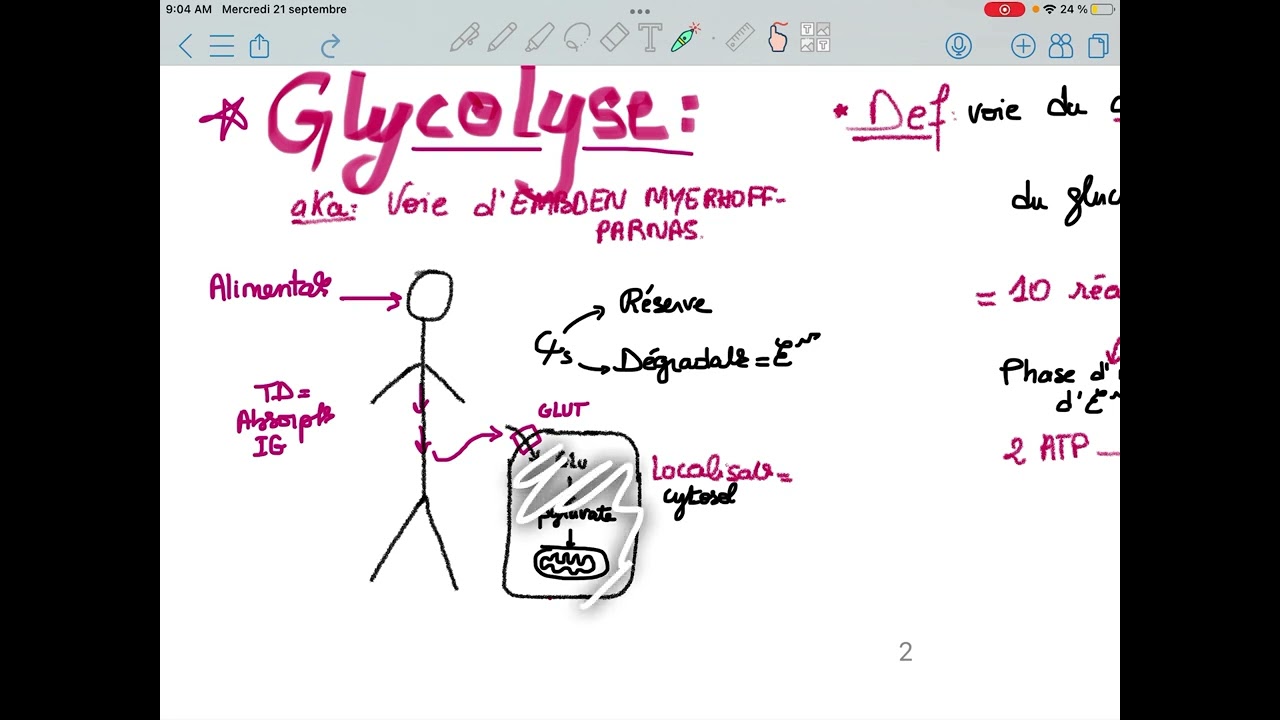 9:04 AM Mercredi 21 septembre
24 %
Glycolyse:
aka: Voie d'EMBDEN MYERHOFF-
PARNAS.
* Def: voie du
du gluc
= 10 réa
Phase d'
d'E
2 ATP
Alimentat°
Réserve
Dégradat° =
TD =
Absorpt°
IG
GLUT
Glu
pyruvate
Localisat° =
cytosol
2